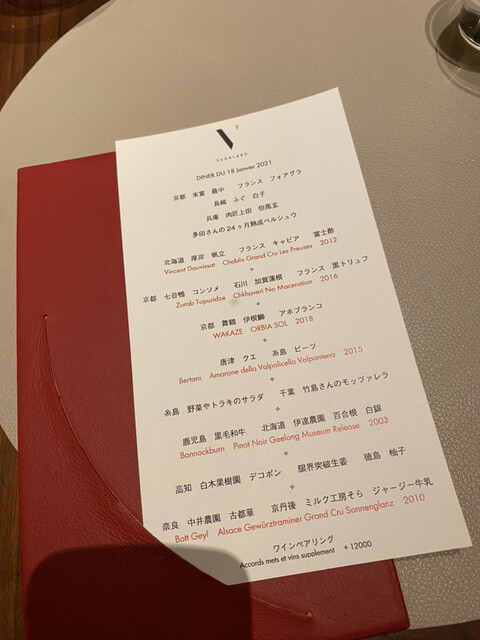 V'
YUGALABO
DINER DU 18 Janvier 2021
京都 末富 最中 フランス フォアグラ
長崎 ふぐ 白子
兵庫 肉匠上田 但馬玄
多田さんの24ヶ月熟成ペルシュウ
北海道 厚岸 帆立 フランス キャビア 富士酢
Vincent Dauvissat Chablis Grand Cru Les Preuses 2012
京都 七谷鴨 コンソメ 石川 加賀蓮根 フランス 黒トリュフ
Zurab Topuridze Chkhaveri No Maceration 2016
京都 舞鶴 伊根鰤 アホブランコ
WAKAZE ORBIA SOL 2018
唐津 クエ 糸島 ビーツ
Bertani Amarone della Valpolicella Valpantena 2015
糸島 野菜やトラキのサラダ 千葉 竹島さんのモッツァレラ
鹿児島 黒毛和牛 北海道 伊達農園 百合根 白銀
Bannockburn Pinot Noir Geelong Museum Release 2003
高知 白木果樹園 デコポン 限界突破生姜 徳島 柚子
奈良 中井農園 古都華 京丹後 ミルク工房そら ジャージー牛乳
Bott Geyl Alsace Gewürztraminer Grand Cru Sonnenglanz 2010
ワインペアリング
Accords mets et vins supplement +12000